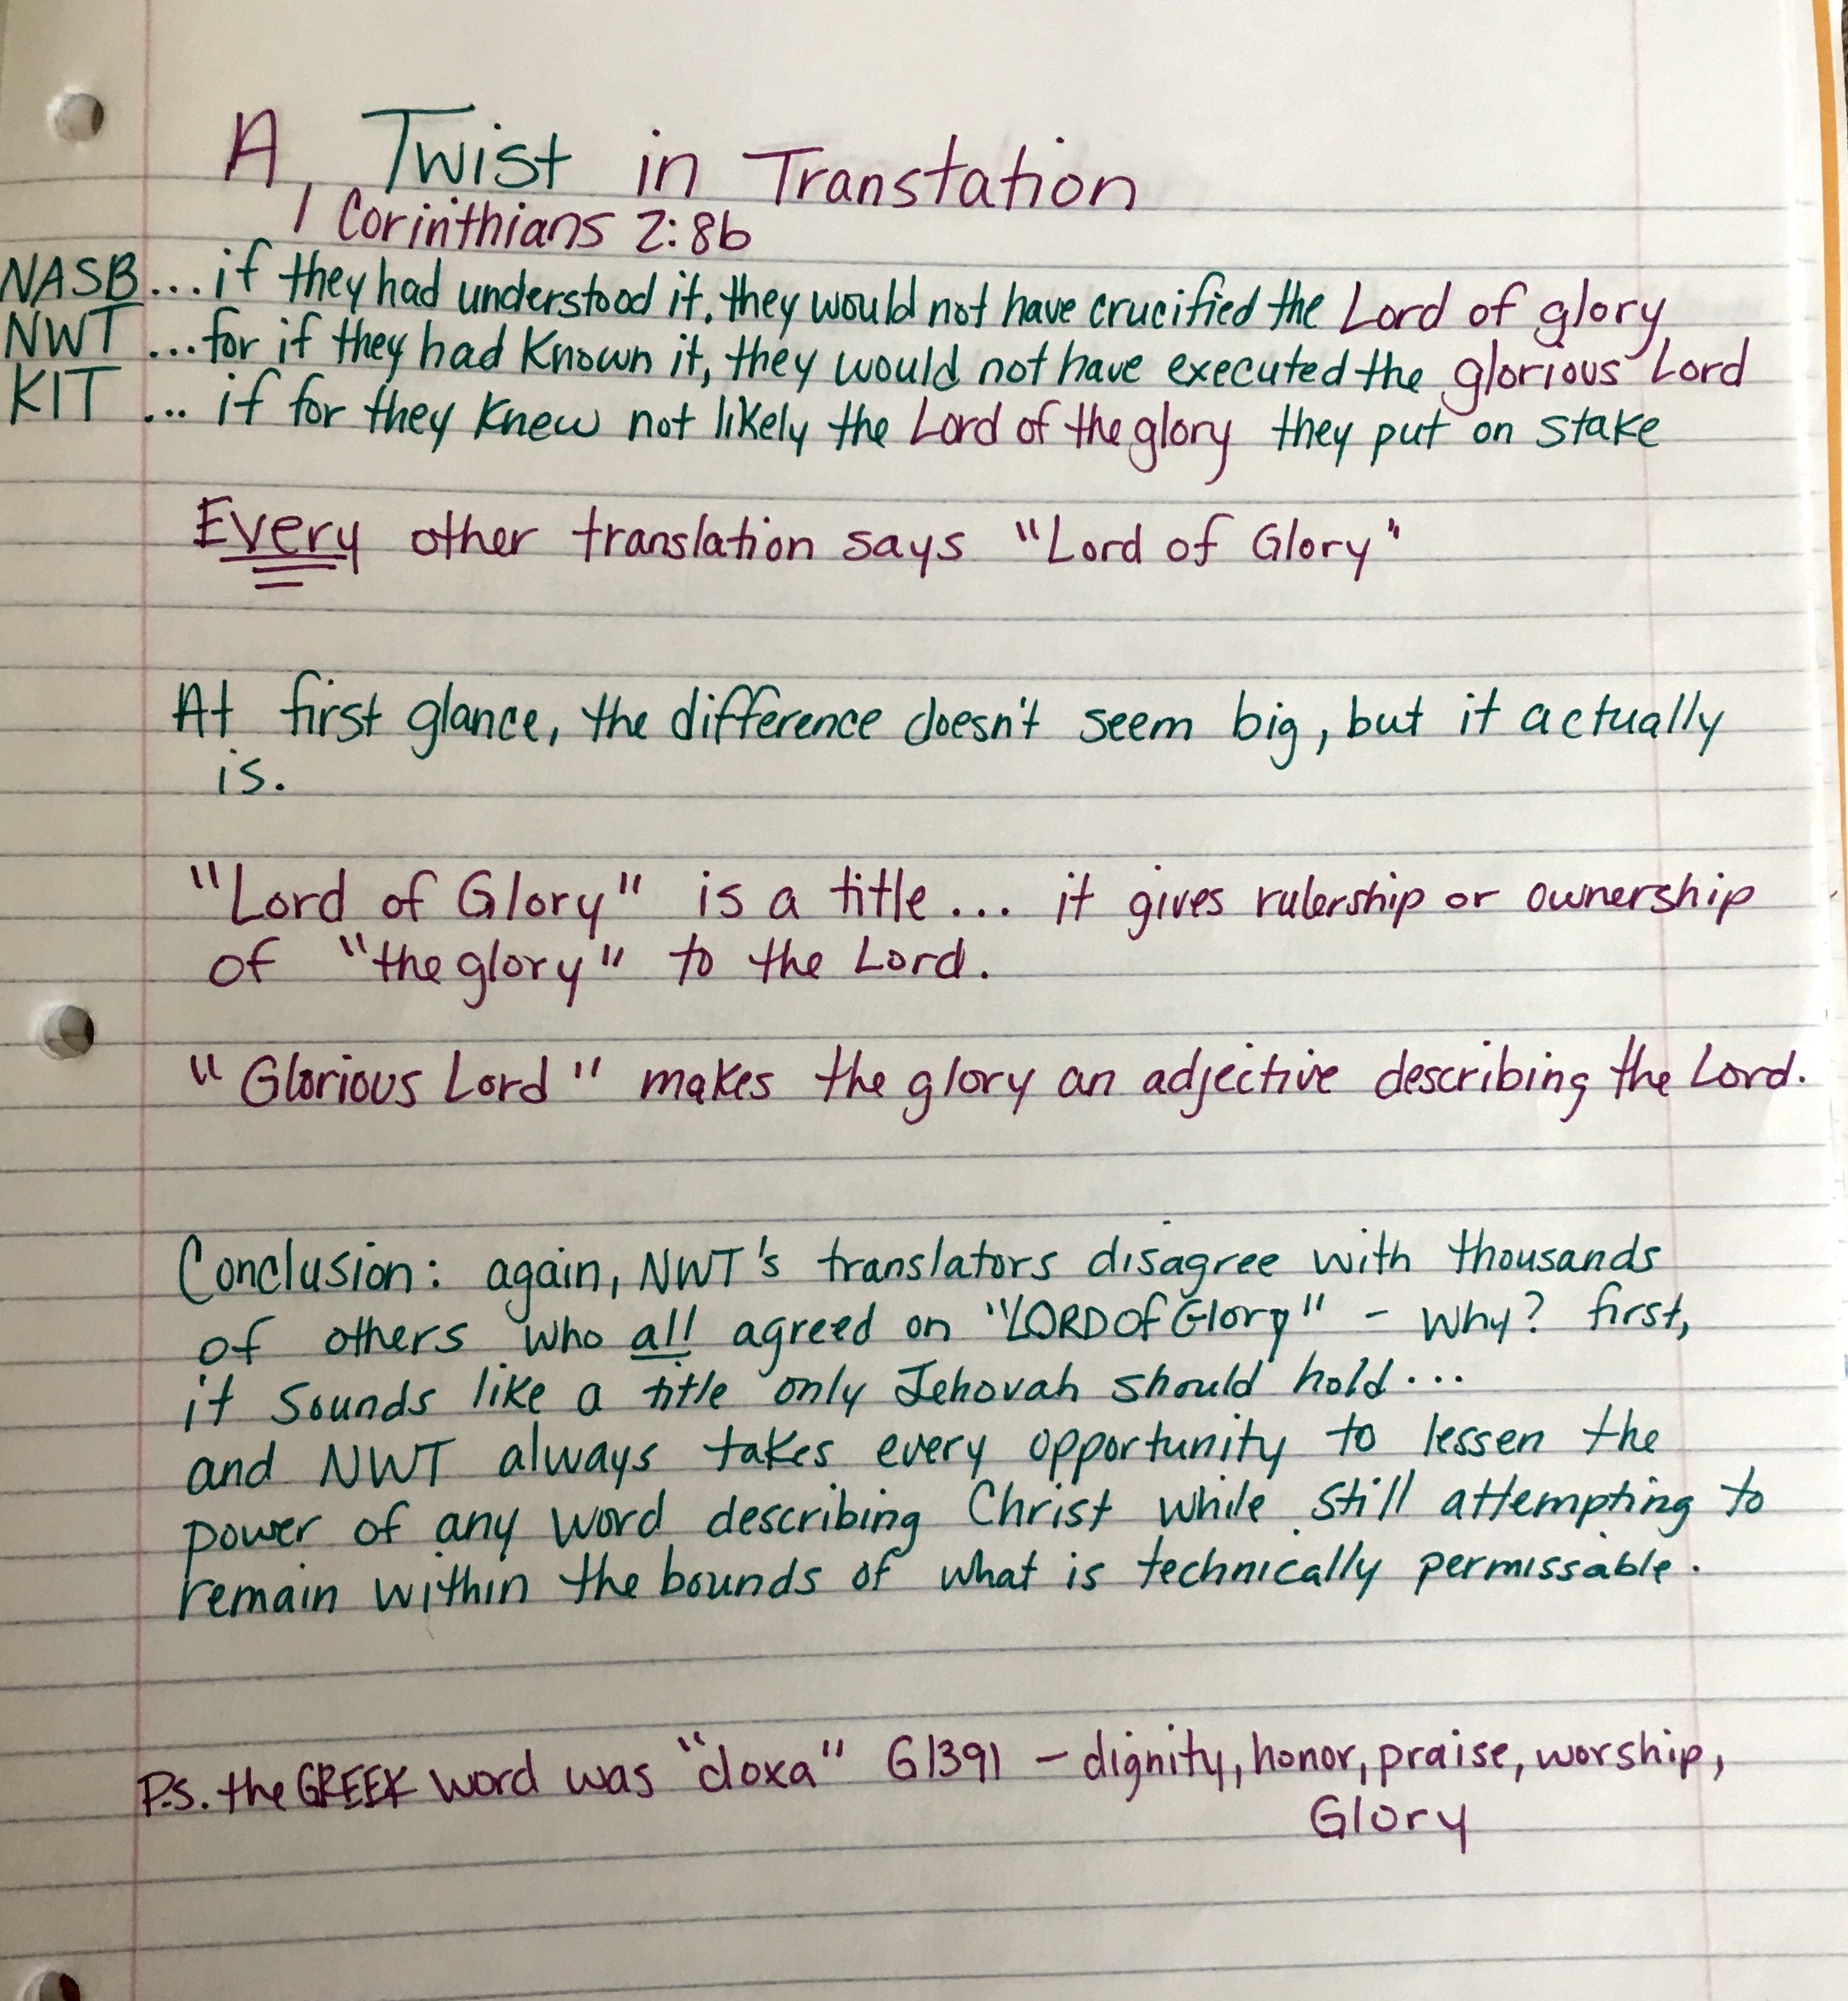 A Twist in Transtation
1 Corinthians 2:8b
NASB ... if they had understood it, they would not have crucified the Lord of glory
NWT ... for if they had known it, they would not have executed the glorious Lord
KIT ... if for they knew not likely the Lord of the glory they put on stake
Every other translation says "Lord of Glory"
At first glance, the difference doesn't seem big, but it actually
is.
"Lord of Glory" is a title ... it gives rulership or ownership
of "the glory" to the Lord.
"Glorious Lord" makes the glory an adjective describing the Lord.
Conclusion: again, NWT's translators disagree with thousands
of others who all agreed on "LORD Of Glory" - Why? first,
it sounds like a title only Jehovah should hold ...
and NWT always takes every opportunity to lessen the
power of any word describing Christ while still attempting to
remain within the bounds of what is technically permissable.
P.s. the GREEK word was "doxa" G1391 - dignity, honor, praise, worship,
Glory